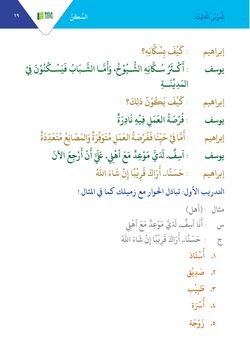 الدَّرْسُ الثَّالِثُ
السَّكَنُ
١٩
إبراهيم : كَيْفَ سُكَّانُهُ؟
يوسف : أَكْثَرُ سُكَّانِهِ الشُّيُوْخُ، وَأَمَّا الشَّبَابُ فَيَسْكُنُوْنَ فِي
الْمَدِيْنَةِ
إبراهيم : كَيْفَ يَكُوْنُ ذَلِكَ؟
يوسف : فُرْصَةُ الْعَمَلِ فِيْهِ نَادِرَةٌ
إبراهيم : أَمَّا فِيْ حَيِّنَا فَفُرْصَةُ الْعَمَلِ مُتَوَفِّرَةٌ وَالْمَصَانِعُ مُتَعَدِّدَةٌ
يوسف : آسِفٌ، لَدَيَّ مَوْعِدٌ مَعَ أَهْلِيْ، عَلَيَّ أَنْ أَرْجِعَ الآنَ
إبراهيم : حَسَنًا.. أَرَاكَ قَرِيْبًا إِنْ شَاءَ اللهُ
التدريب الأول: تبادل الحوار مع زميلك كما في المثال :
مثال : (أهل)
س : أَنَا آسِفٌ، لَدَيَّ مَوْعِدٌ مَعَ أَهْلِيْ
ج : حَسَنًا.. أَرَاكَ قَرِيْبًا إِنْ شَاءَ اللهُ
١. أُسْتَاذ
٢. صَدِيْق
٣. طَبِيْب
٤. أُسْرَة
٥. زَوْجَة